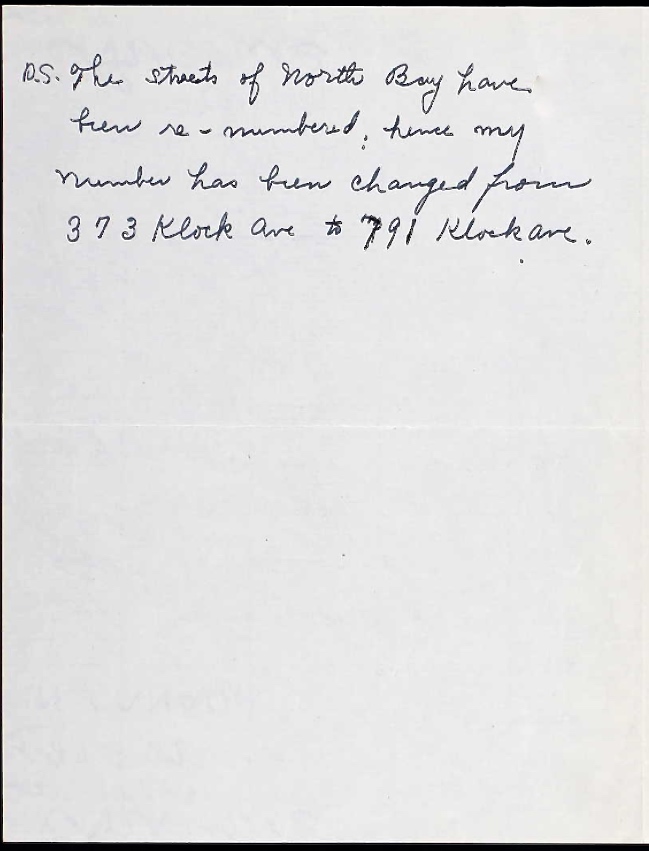 P.S. The streets of North Bay have
been re-numbered; hence my
number has been changed from
373 Klock Ave to 791 Klock ave.